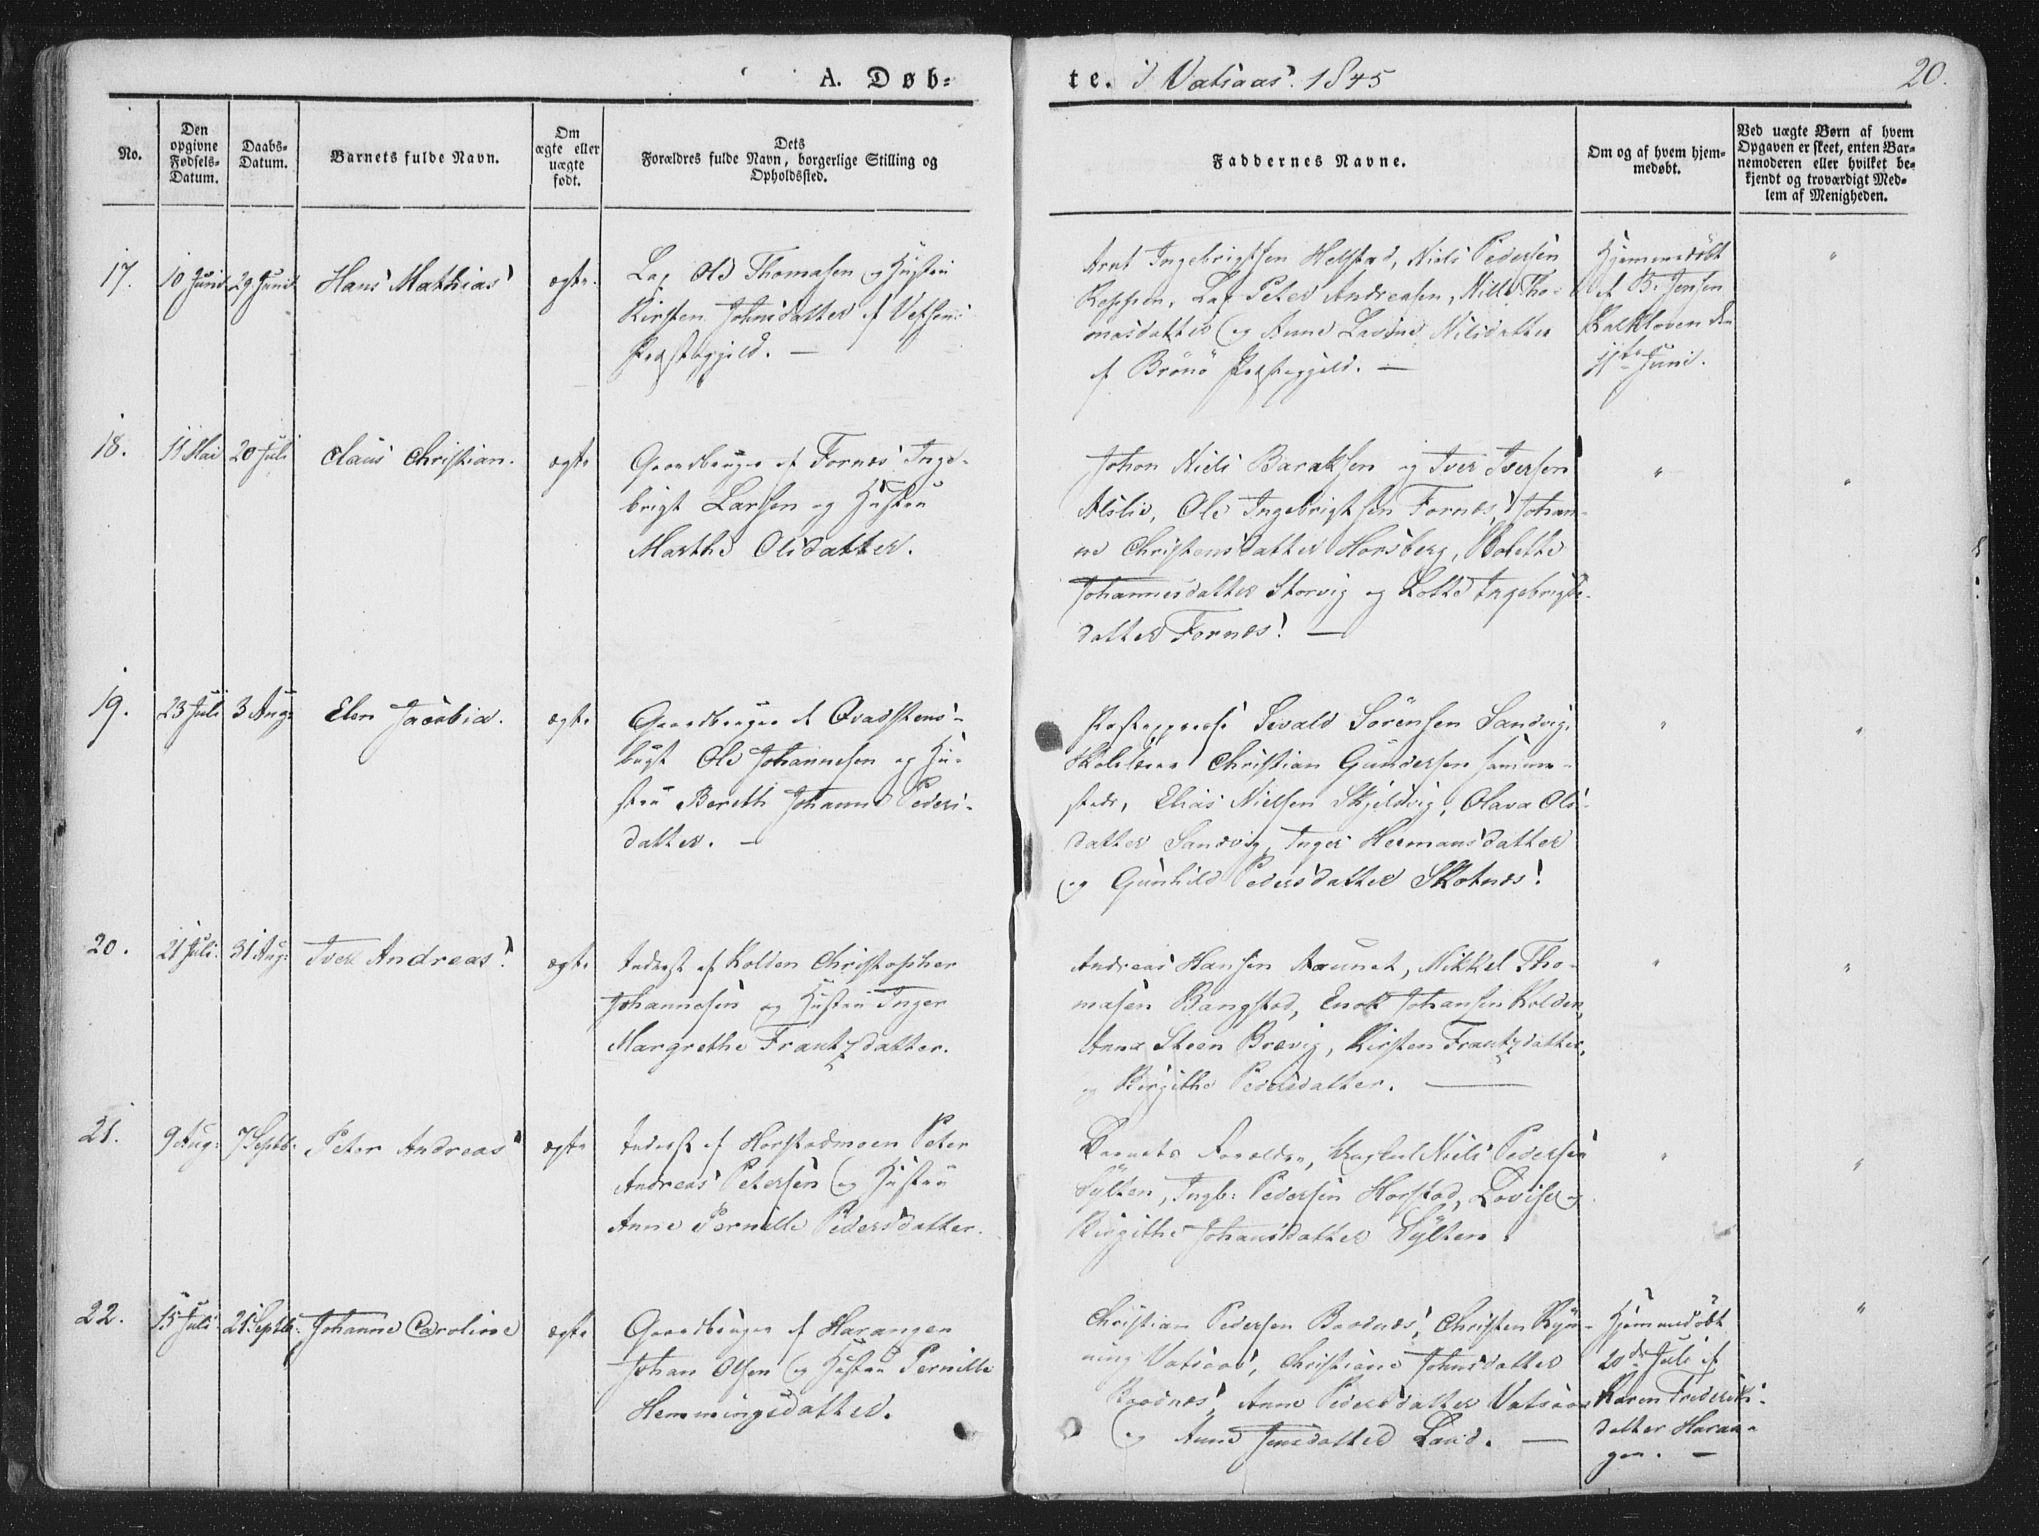 A. Døb-
te. i Vatsaas. 1845
20.
No.
Den opgivne Fødsels-Datum.
Daabs-Datum.
Barnets fulde Navn.
Om ægte eller uægte født.
Dets
Forældres fulde Navn, borgerlige Stilling og
Opholdssted.
Faddernes Navne.
Om og af hvem hjem-
medøbt.
Ved uægte Børn af hvem
Opgaven er skeet, enten Bar-
nemoderen eller hvilket be-
kjendt og troværdigt Med-
lem af Menigheden.
17.
10 Juni
29 Juni
Hans Mathias
ægte.
Lap Ole Thomasen og Hustru
Kirsten Johnsdatter af
Præstegjeld. —
Arnt Ingebrigtsen Helstad, Niels Pedersen
Lap Peter Andreasen, Tho-
masdatter og Anne Lavine Nilsdatter
af Brönö Præstegjeld. —
Hjemmedöbt
af B. Jensen
Kalkloven den
11te Juni.
"
18.
11 Mai
20 Juli
Claus Christian.
ægte
Gaardbruger af Fornæs Inge-
brigt Larsen og Hustru
Marthe Olsdatter.
Johan Niels Baraksen og Iver Iversen
Alslie, Ole Ingebrigtsen Fornæs, Johan-
ne Christensdatter Horsberg, Bolette
Johannesdatter Storvig og Lotte Ingebrigts-
datter Fornæs! —
"
"
19.
23 Juli
3 Aug:
Elen Jacobia.
ægte
Gaardbruger af Qvadstens-
bugt Ole Johannesen og Hu-
stru Bereth Johanne Peders-
datter. —
Sivald Sörensen Sandvig,
Skolelærer Christian Gundersen samme-
steds, Elias Nielsen Skjeldvig, Olava Ols-
datter Sandvig, Inger Hermansdatter
og Gunhild Pedersdatter Skotnes!
"
"
20.
21 Juli.
31 Aug:
Iver Andreas!
ægte
Inderst af Kolden Christopher
Johannesen og Hustru Inger
Margrethe Frantzdatter.
Andreas Hansen Aaunet, Mikkel Tho-
masen Bangstad, Enok Johansen Kolden,
Anna Steen Brevig, Kirsten Frantzdatter,
og Birgithe Pedersdatter. —
"
"
21.
9 Aug:
7 Septb:
Peter Andreas
ægte
Inderst af Horstadmoen Peter
Andreas Petersen og Hustru
Anne Pernille Pedersdatter.
Barnets Forældre, Niels Pedersen
Sylten, Ingb: Pedersen Horstad, Lovise og
Birgithe Johansdatter Sylten.
"
"
22.
15 Juli
21 Septb:
Johanne Caroline
ægte
Gaardbruger af Harangen
Johan Olsen og Hustru Pernille
Hemmingsdatter.
Christian Pedersen Baadnæs, Christen Kyn-
ning Vatsaas, Christiane Johnsdatter
Baadnæs, Anne Pedersdatter Vatsaas
og Anne Jensdatter Laud. —
Hjemmedöbt
20de Juli af
Karen Frederiks-
datter Haran-
gen. —
"